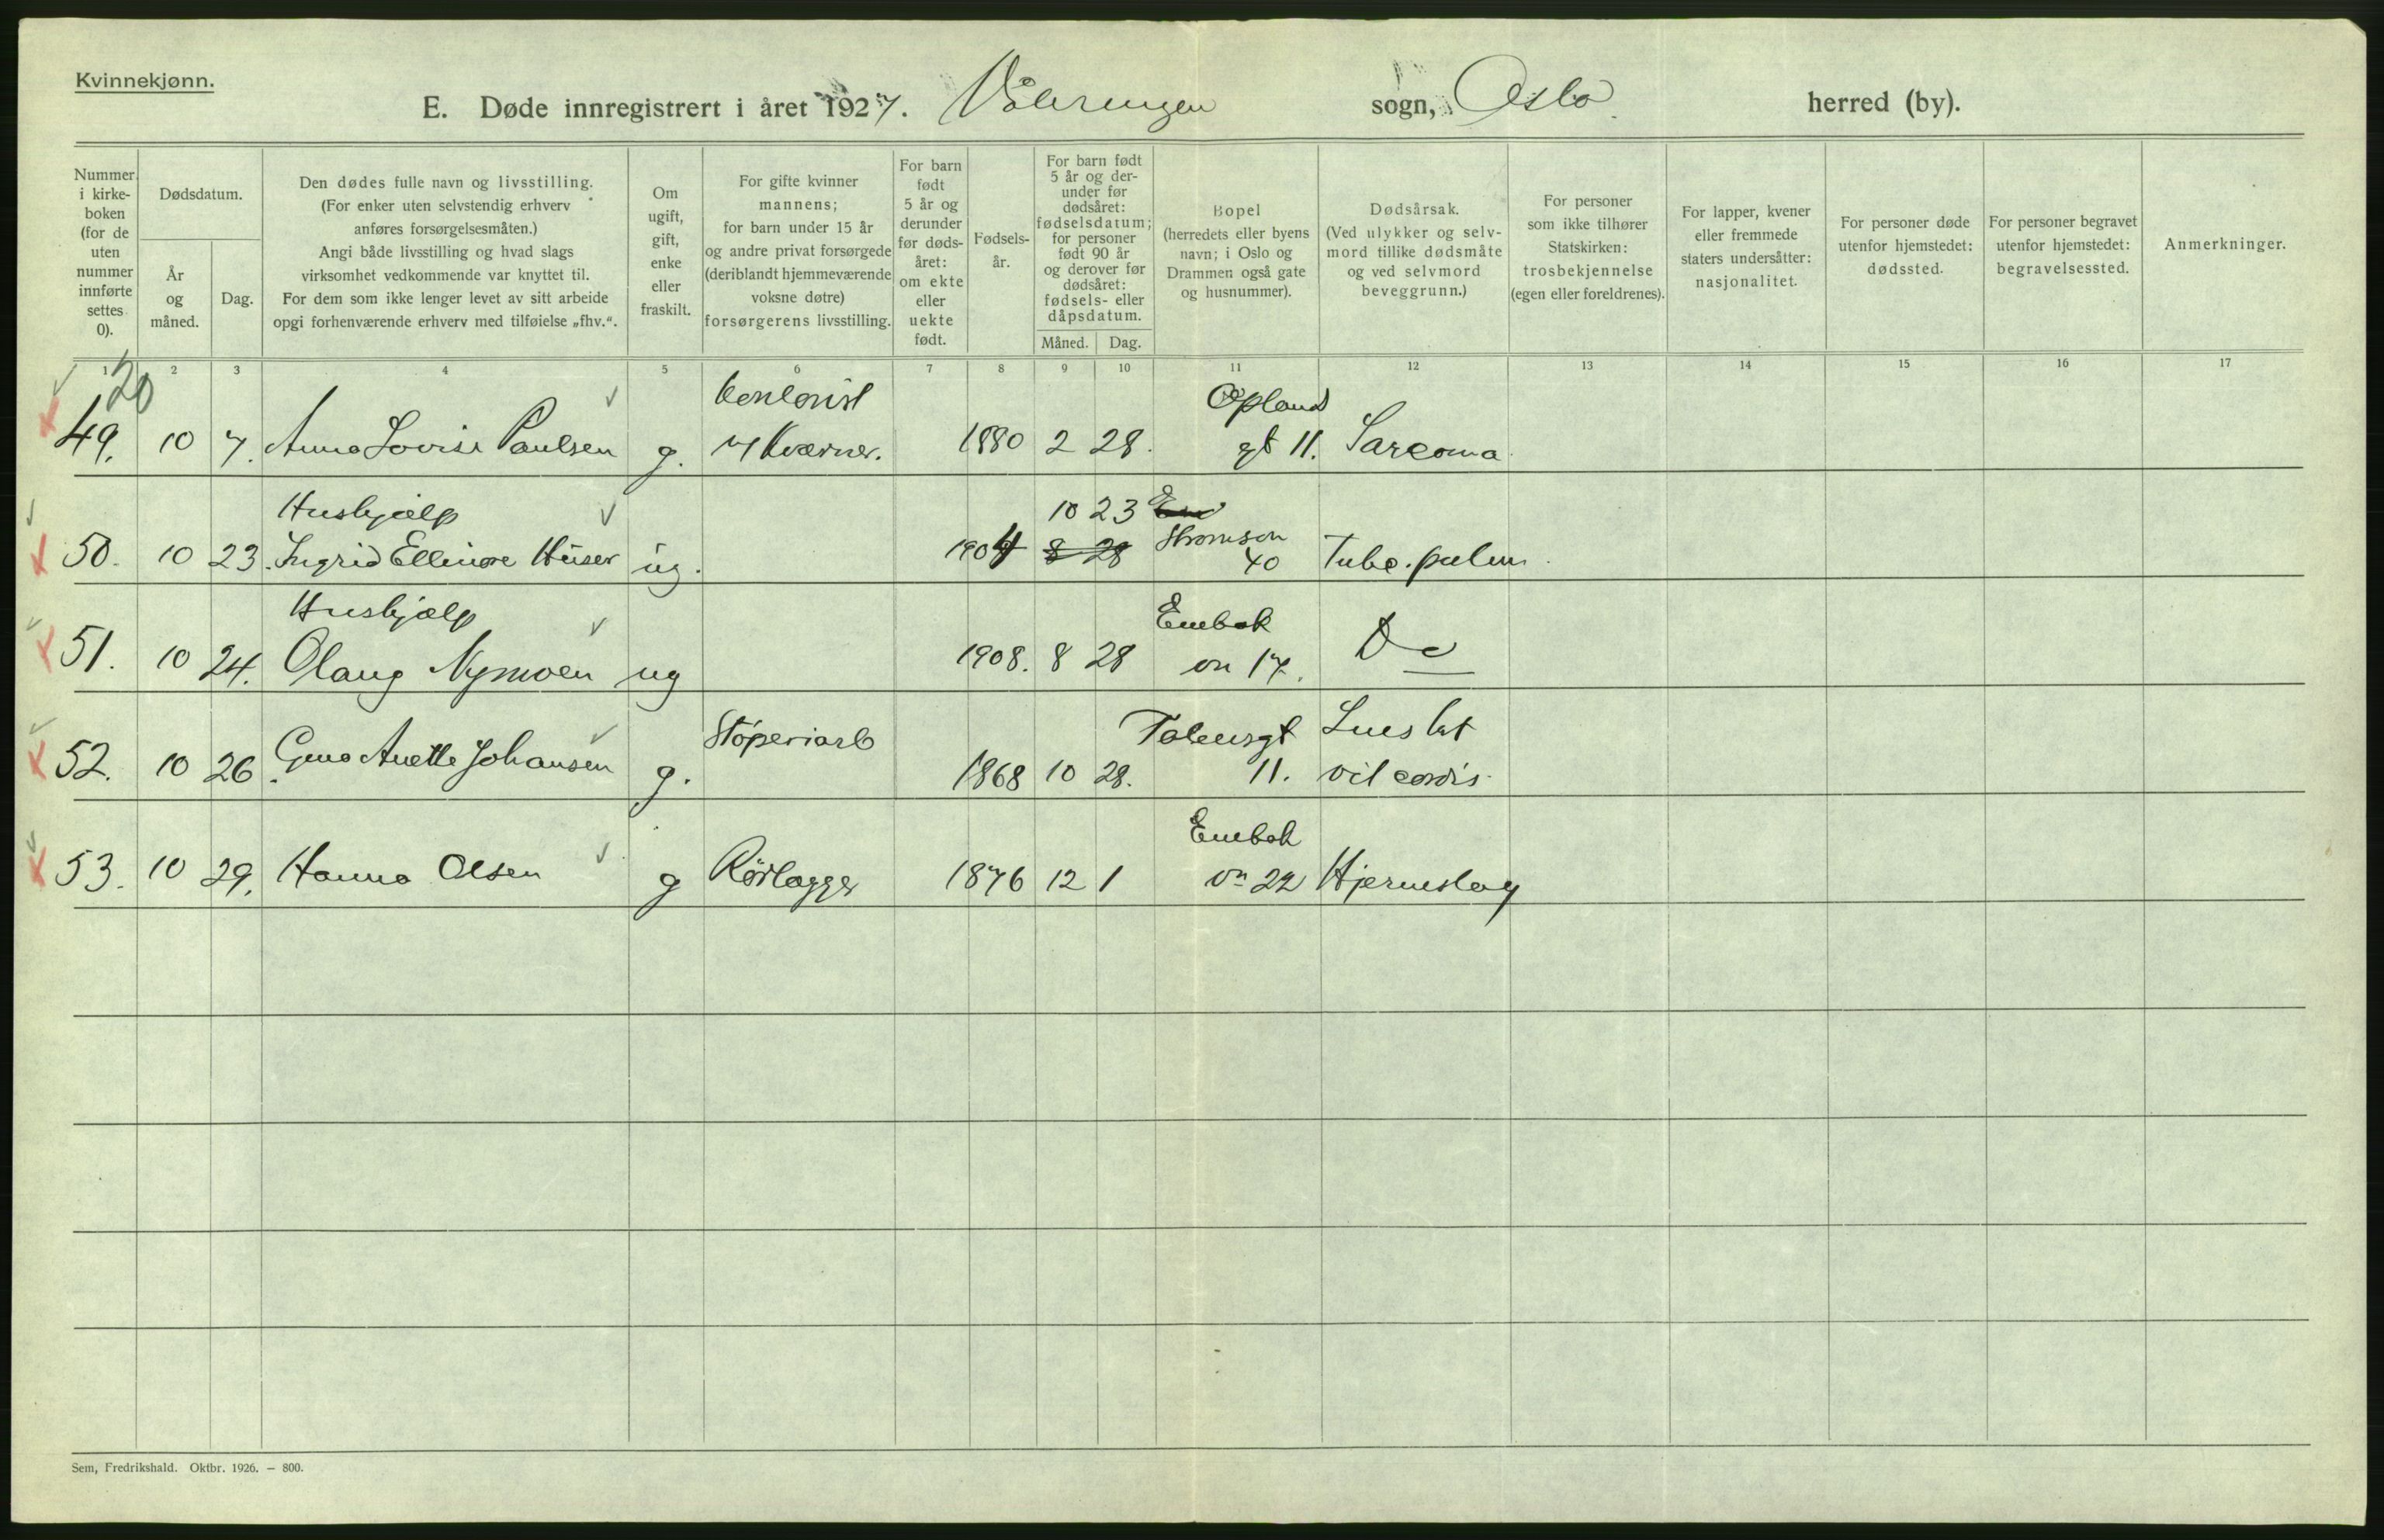 Kvinnekjønn.
E. Døde innregistrert i året 1927. Våleringen sogn, Oslo herred (by).
Nummer i kirke-boken (for de uten nummer innførte settes 0).
Dødsdatum.
År og måned.
Dag.
Den dødes fulle navn og livsstilling.
(For enker uten selvstendig erhverv
anføres forsørgelsesmåten.)
Angi både livsstilling og hvad slags
virksomhet vedkommende var knyttet til.
For dem som ikke lenger levet av sitt arbeide
opgi forhenværende erhverv med tilføielse „fhv.“.
Om ugift, gift, enke eller fraskilt.
For gifte kvinner
mannens;
for barn under 15 år
og andre privat forsørgede
(deriblandt hjemmeværende
voksne døtre)
forsørgerens livsstilling.
For barn født 5 år og derunder før døds-året: om ekte eller uekte født.
Fødsels-år.
For barn født
5 år og der-
under før
dødsåret:
fødselsdatum;
for personer
født 90 år
og derover før
dødsåret:
fødsels- eller
dåpsdatum.
Måned. Dag.
Bopel
(herredets eller byens
navn; i Oslo og
Drammen også gate
og husnummer).
Dødsårsak.
(Ved ulykker og selv-
mord tillike dødsmåte
og ved selvmord
beveggrunn.)
For personer
som ikke tilhører
Statskirken:
trosbekjennelse
(egen eller foreldrenes).
For lapper, kvener
eller fremmede
staters undersåtter:
nasjonalitet.
For personer døde
utenfor hjemstedet:
dødssted.
For personer begravet
utenfor hjemstedet:
begravelsessted.
Anmerkninger.
1 2 3 4 5 6 7 8 9 10 11 12 13 14 15 16 17
20
Kontorist Opland
49. 10 7. Anna Lovise Paulsen g. v/ Kværner. 1880 2 28. gt 11. Sarcoma
Hushjælp 10 23
50. 10 23. Ingrid Ellinore Huser ug. 1904 8 28 Strømsvn 40 Tube. pulm.
Hushjælp Enebak
51. 10 24. Olaug Nymoen ug 1908. 8 28 vn 17. Do
Støperiarb Talensgt Lues lat
52. 10 26. Gina Anette Johansen g. 1868 10 28. 11. vit cordis.
Enebak
53. 10 29. Hanna Olsen g Rørlægger 1876 12 1 vn 22 Hjerneslag
Sem, Fredrikshald. Oktbr. 1926. – 800.